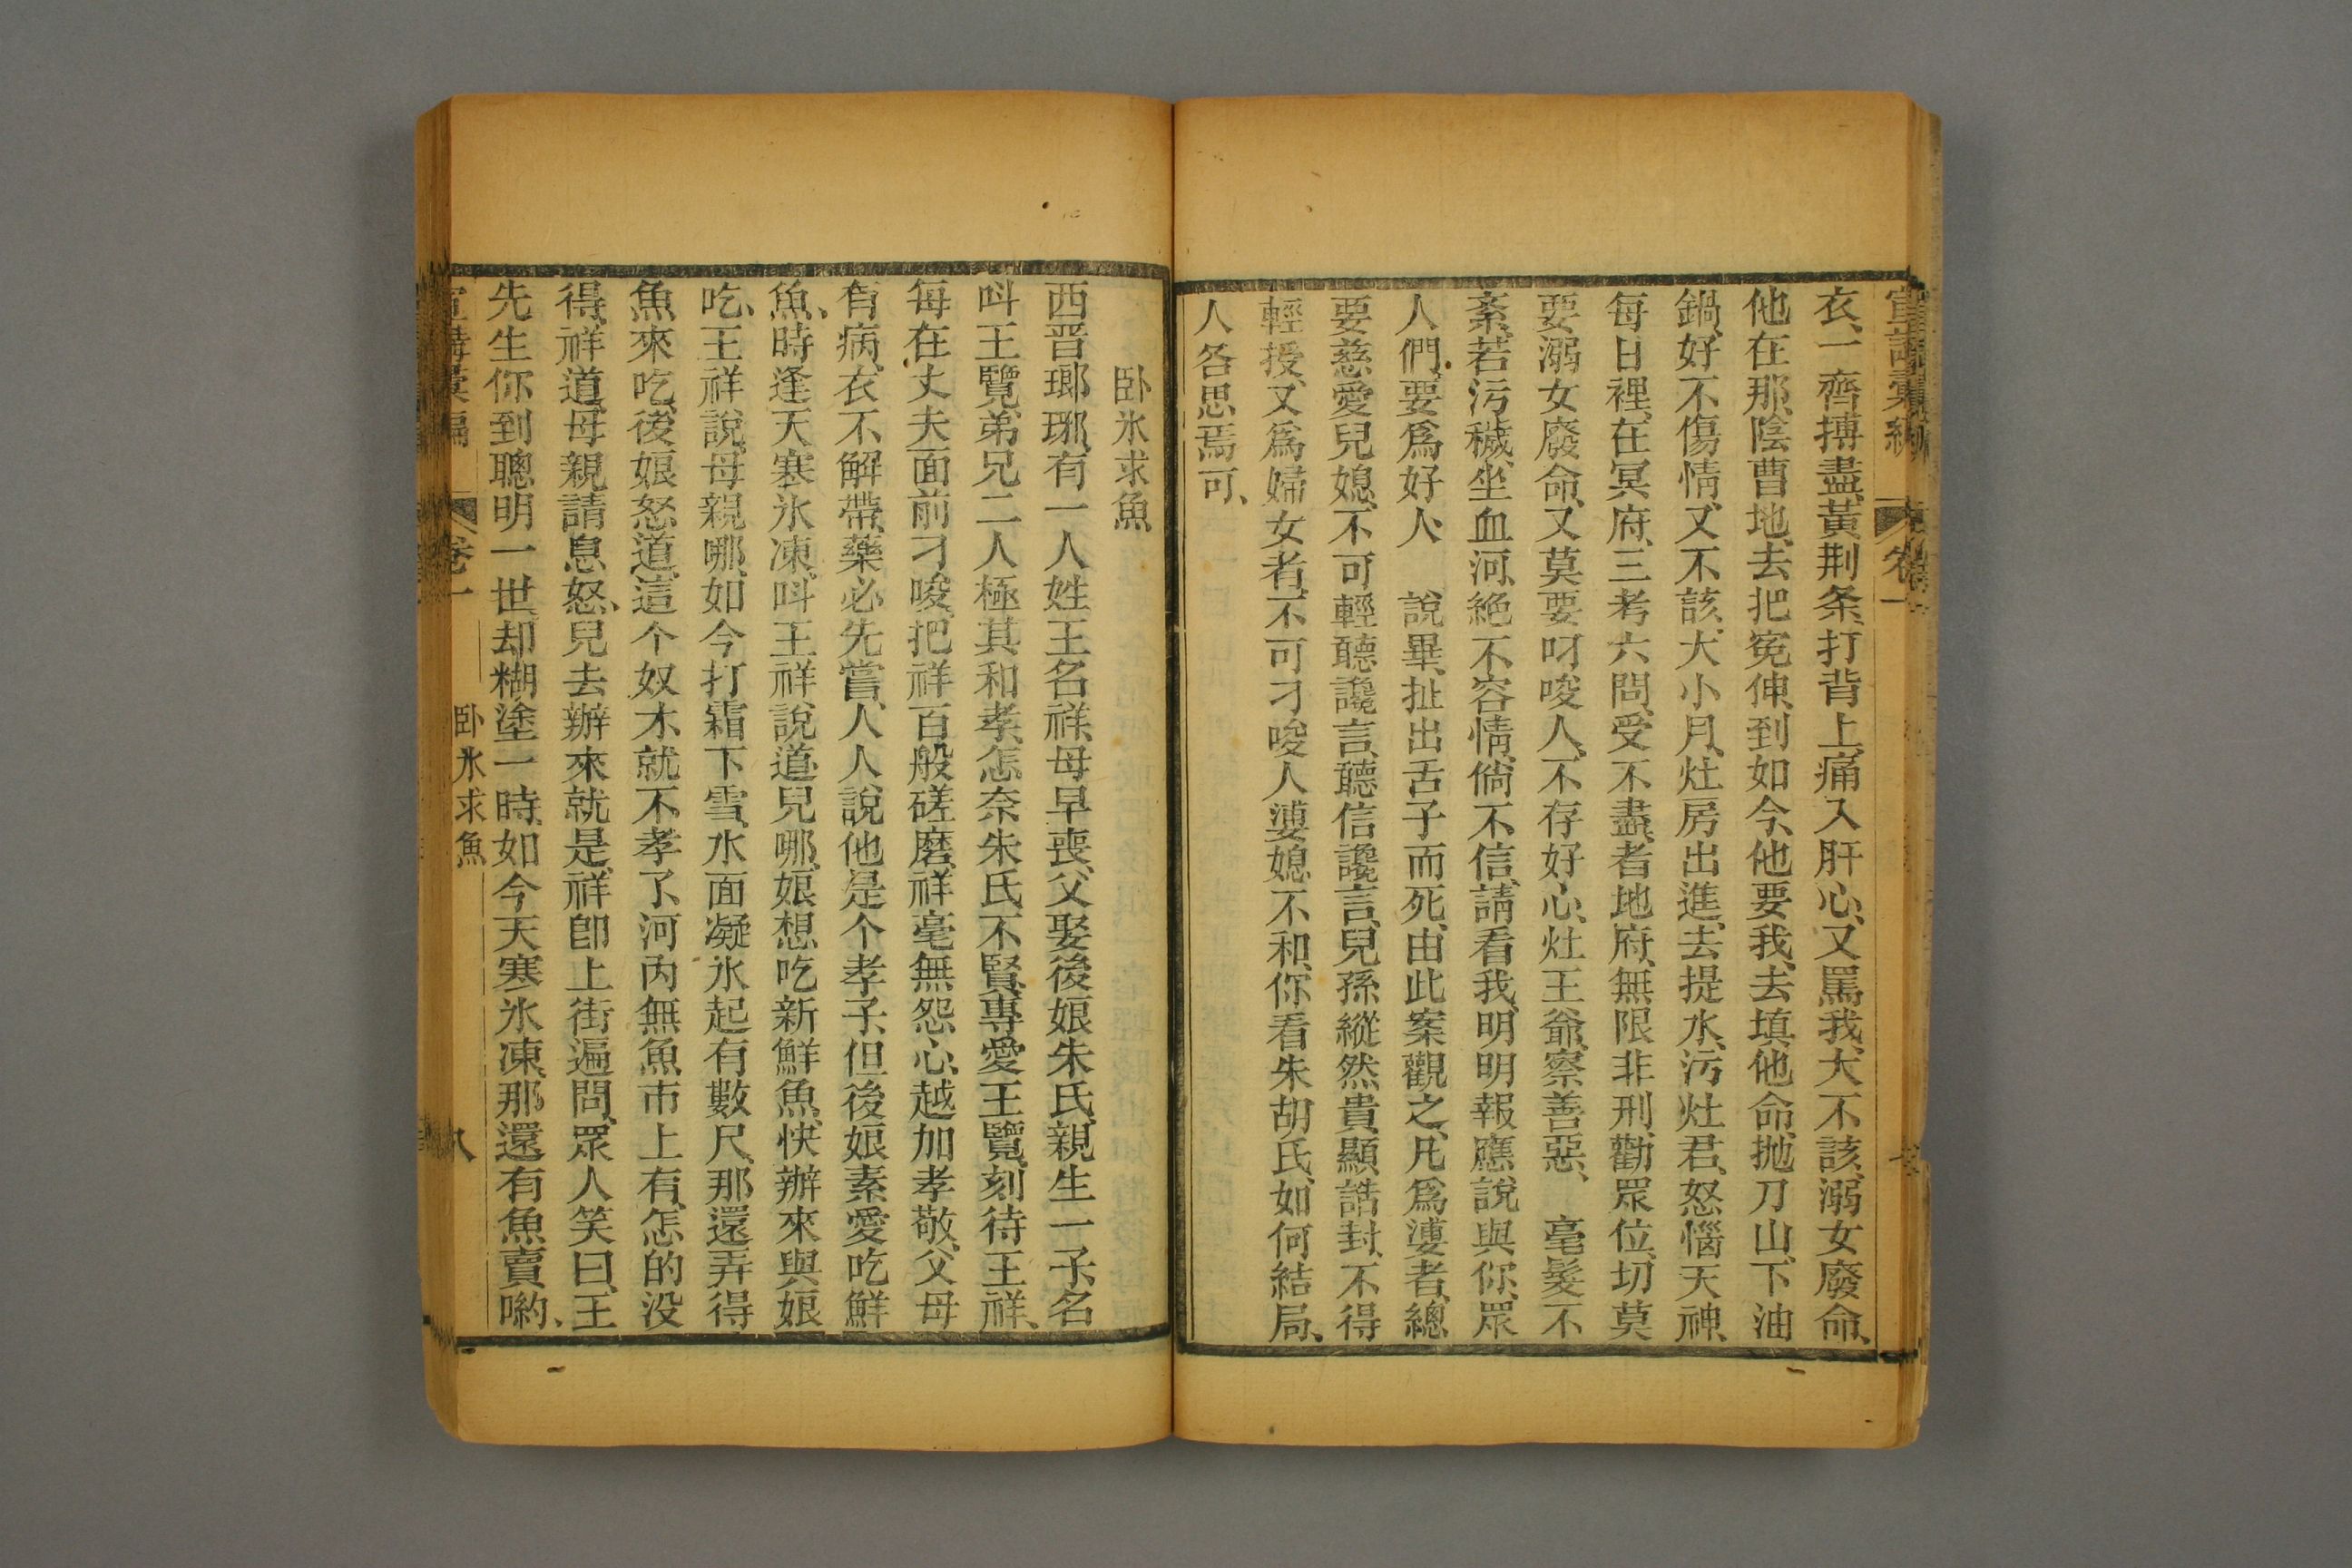 宣講彙編 卷一 七
衣、一齊搏盡、黃荆条、打背上、痛入肝心、又罵我、大不該、溺女廢命、
他在那、陰曹地、去把冤伸、到如今、他要我、去填他命、抛刀山、下油
鍋、好不傷情、又不該、大小月、灶房出進、去提水、污灶君、怒惱天神、
每日裡、在冥府、三考六問、受不盡、者地府、無限非刑、勸眾位、切莫
要、溺女廢命、又莫要叼唆人、不存好心、灶王爺、察善惡、 毫髮不
紊、若污穢、坐血河、絶不容情、倘不信、請看我、明明報應、說與你、眾
人們、要爲好人、 說畢、扯出舌子而死、由此案觀之、凡爲婆者、總
要慈愛兒媳、不可輕聽讒言、聽信讒言、兒孫縱然貴顯、誥封不得
輕授、又爲婦女者、不可刁唆人婆媳不和、你看朱胡氏、如何結局、
人各思焉可、
卧氷求魚
西晋瑯琊、有一人姓王名祥、母早喪、父娶後娘朱氏、親生一子、名
呌王覽、弟兄二人極其和孝、怎奈朱氏不賢、專愛王覽、刻待王祥、
每在丈夫面前刁唆、把祥百般磋磨、祥毫無怨心、越加孝敬、父母
有病、衣不解帶、藥必先嘗、人人說他是个孝子、但後娘素愛吃鮮
魚、時逢天寒氷凍、呌王祥說道、兒哪、娘想吃新鮮魚、快辦來與娘
吃、王祥說、母親哪、如今打霜下雪、水面凝氷起有數尺、那還弄得
魚來吃、後娘怒道、這个奴才、就不孝了、河內無魚、市上有、怎的没
得、祥道、母親請息怒、兒去辦來就是、祥卽上街遍問、眾人笑曰、王
先生你到聰明一世、却糊塗一時、如今天寒氷凍、那還有魚賣喲、
宣講彙編 卷一 卧氷求魚 八